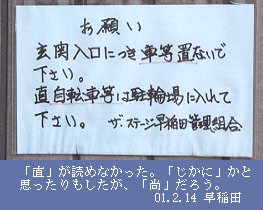 お願い
玄関入口につき車等置ないで
下さい。
直自転車等は駐輪場に入れて
下さい。
ザ.ステージ早稲田管理組合
「直」が読めなかった。「じかに」かと
思ったりもしたが、「尚」だろう。
01.2.14 早稲田